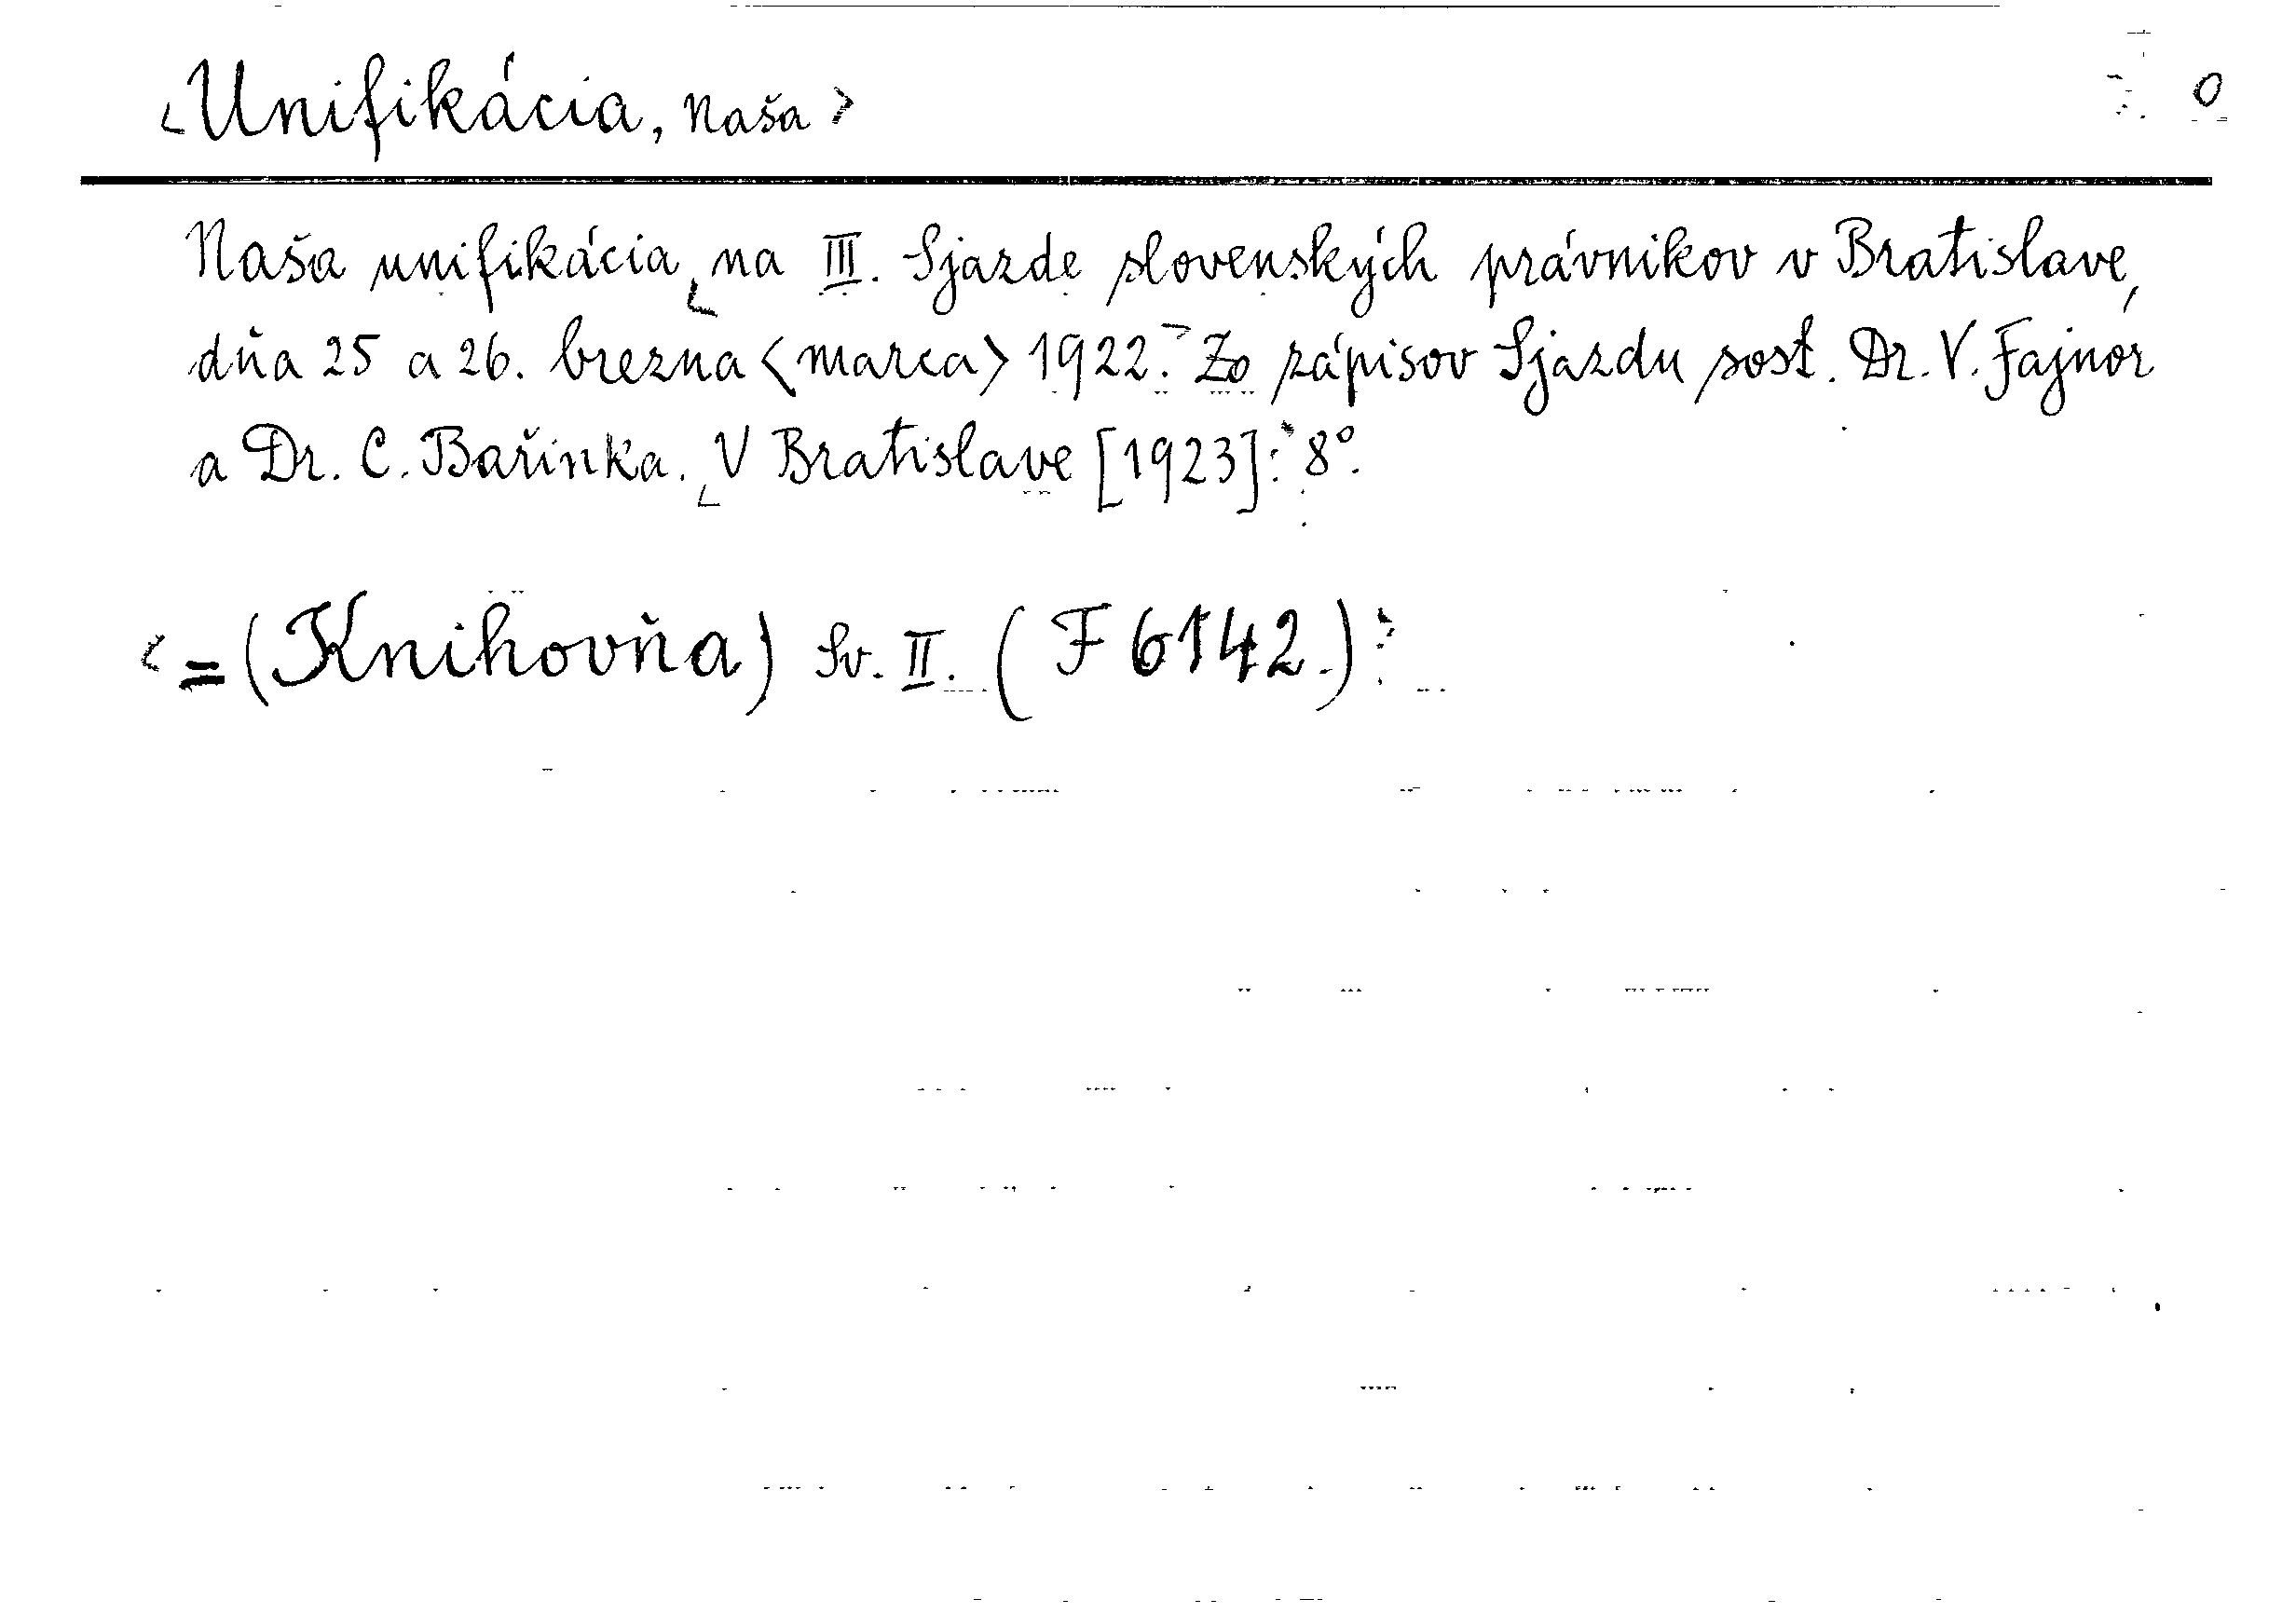 <Unifikácia, Naša> 0
Naša unifikácia na III. Sjazde slovenských právnikov v Bratislave,
dňa 25 a 26. brezna <marca> 1922. Zo zápisov Sjazdu sost. Dr. V. Fajnor
a Dr. C. Bařinka. V Bratislave [1923]. 8°.
<=(Knihovňa) Sv. II. (F 6142.)>